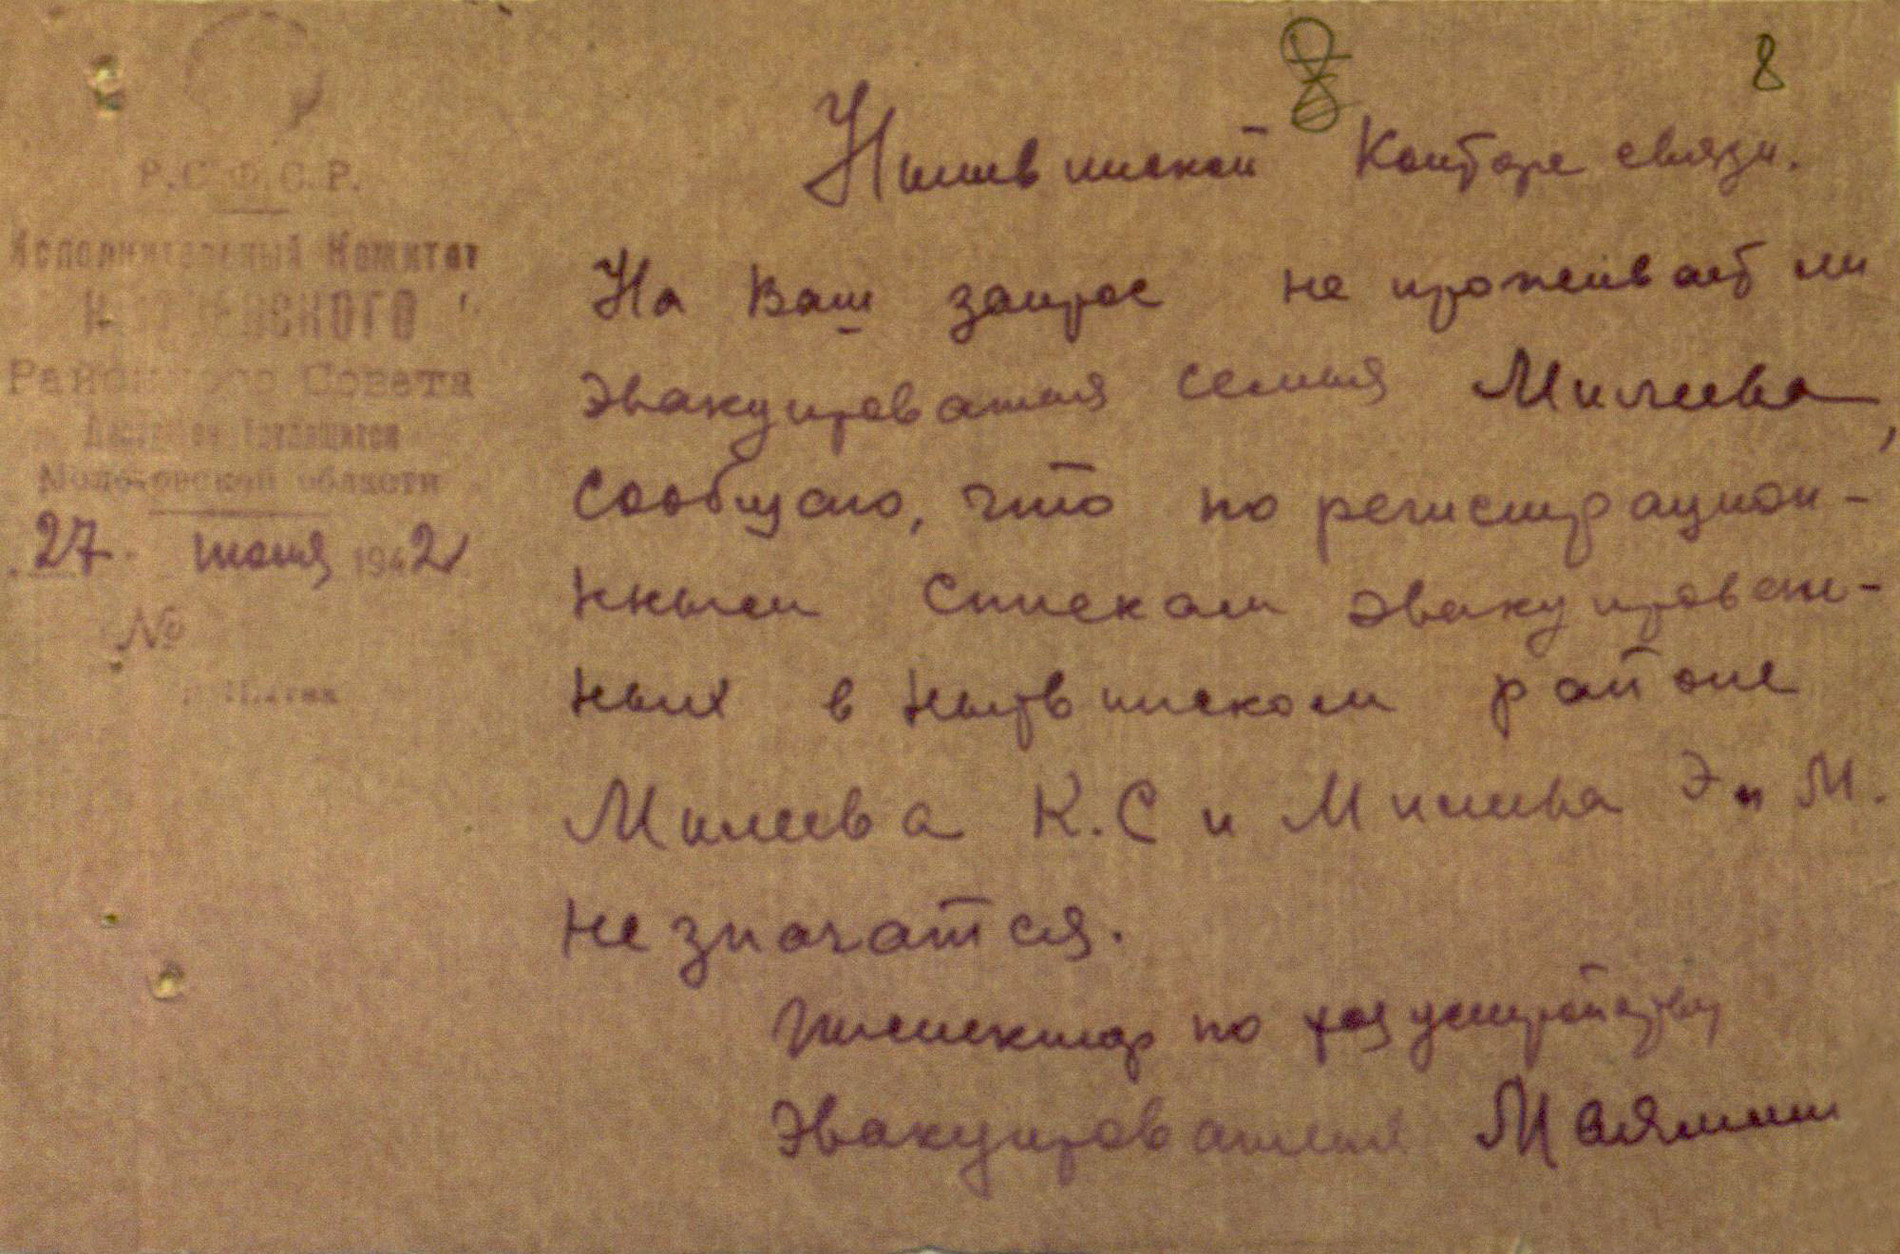 8
Р.С.Ф.С.Р.
Исполнительный Комитет
Районного Совета
Молотовской области
27 июня 1942
№
Нытвинской Конторе связи.
На Ваш запрос не проживает ли
эвакуированая семья Милиева,
сообщаю, что по регистрацион-
нным спискам эвакуирован-
ных в Нытвинском районе
Милиева К.С и Милиева Э. М.
не значатся.
Инспектор по хозустройству
Эвакуирования